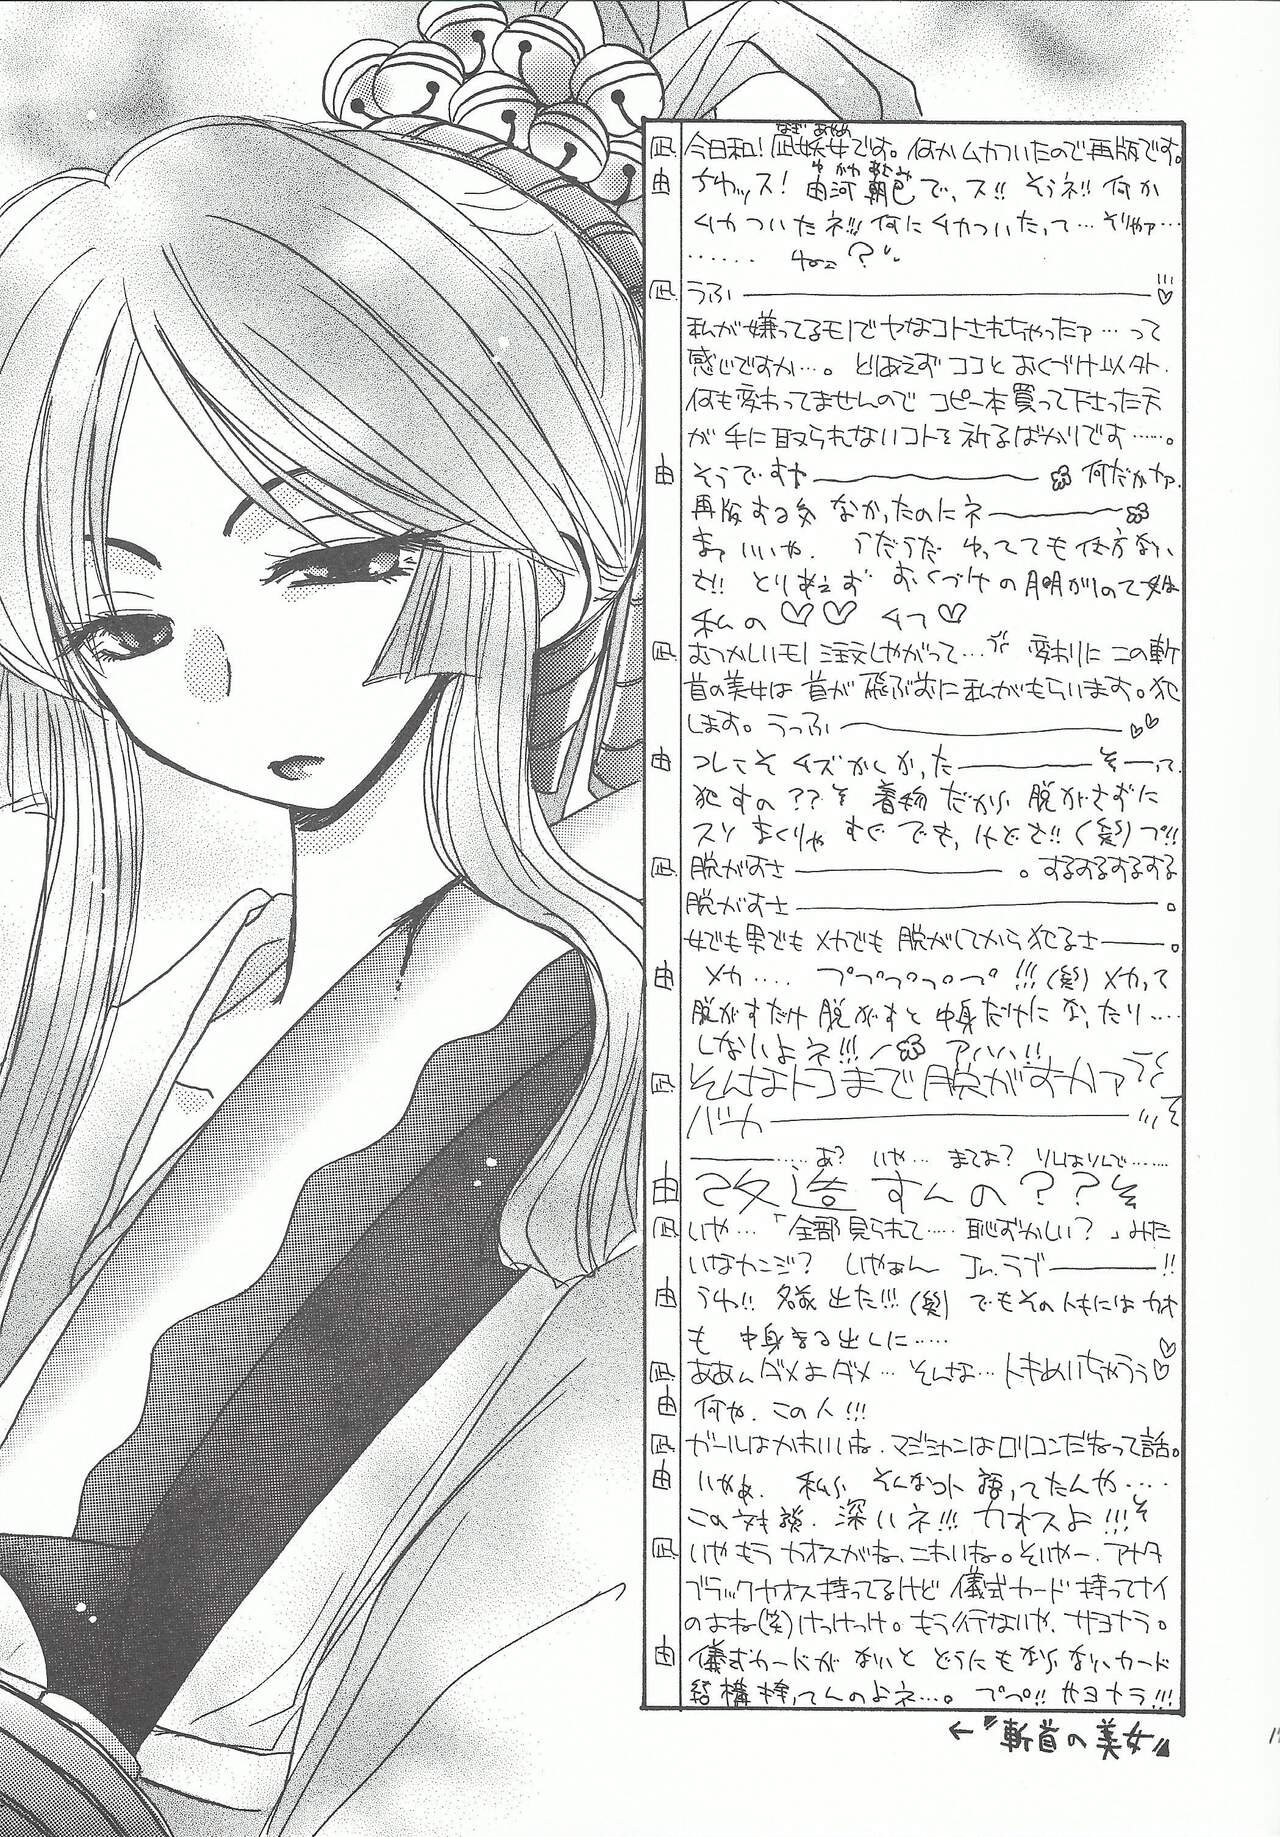 なぎ あやめ
凪 今日和! 凪妖女です。何かムカついたので再版です。
ゆかわ あさみ
由 ちわッス! 由河朝巳で、ス!! そうネ!! 何か
ムカついたネ!!! 何にムカついたって…そりゃァ……
…… ねェ?
凪 うふ
私が嫌ってるモノでヤなコトされちゃったァ…って
感じですか…。とりあえず ココと おくづけ以外
何も変わってませんので コピー本買って下さった方
が 手に取られないコトを祈るばかりです……。
由 そうですヤ 何だかナァ
再版する気 なかったのにネ
まァ いいや. うだうだ ゆってても仕方ない
さ!! とりあえず おくづけの
私の
凪 むつかしいモノ 注文しやがって… 変わりに この斬
首の美女は 首が飛ぶ前に私がもらいます。犯
します。うっふ
由 コレこそ ムズかしかった そーって
犯すの?? 着物だから 脱がさずに
スソ まくりゃ すぐ でも、けどさ!! (笑)プ!!
凪 脱がすさ 。するするするする
脱がすさ 。
女でも男でも メカでも 脱がしてから犯るさ 。
由 メカ…. プププププ!!! (笑) メカって
脱がすだけ 脱がすと 中身だけに なったり….
しないよネ!!! アハハ!!
凪 そんなトコまで脱がすかァ
バカ
……あ? いや… まてよ? りんはりんで……
由 改造すんの??
凪 いや…「全部見られて…. 恥ずかしい?」みた
いなカンジ? いやぁん Jr.ラブ !!
由 うわ!! 名前出た!!! (笑) でもそのトキにはカオ
も 中身まる出しに……
凪 ああんダメよダメ… そんな… トキめいちゃうぅ
由 何や. この人!!!
凪 ガールはかわいいね. マジシャンはロリコンだねって話。
由 いやぁ. 私ら そんなコト 語ってたんや….
この対談. 深いネ!!! カオスよ!!!
凪 いやもう カオスがね、こわいね。そいやー. アナタ
ブラックカオス持ってるけど 儀式カード 持ってナイ
のよね(笑)けっけっけ。もう行ないや. サヨナラ。
由 儀式カードが ないと どうにもならないカード
結構 持ってんのよネ…。プププ!! サヨナラ!!!
←『斬首の美女』